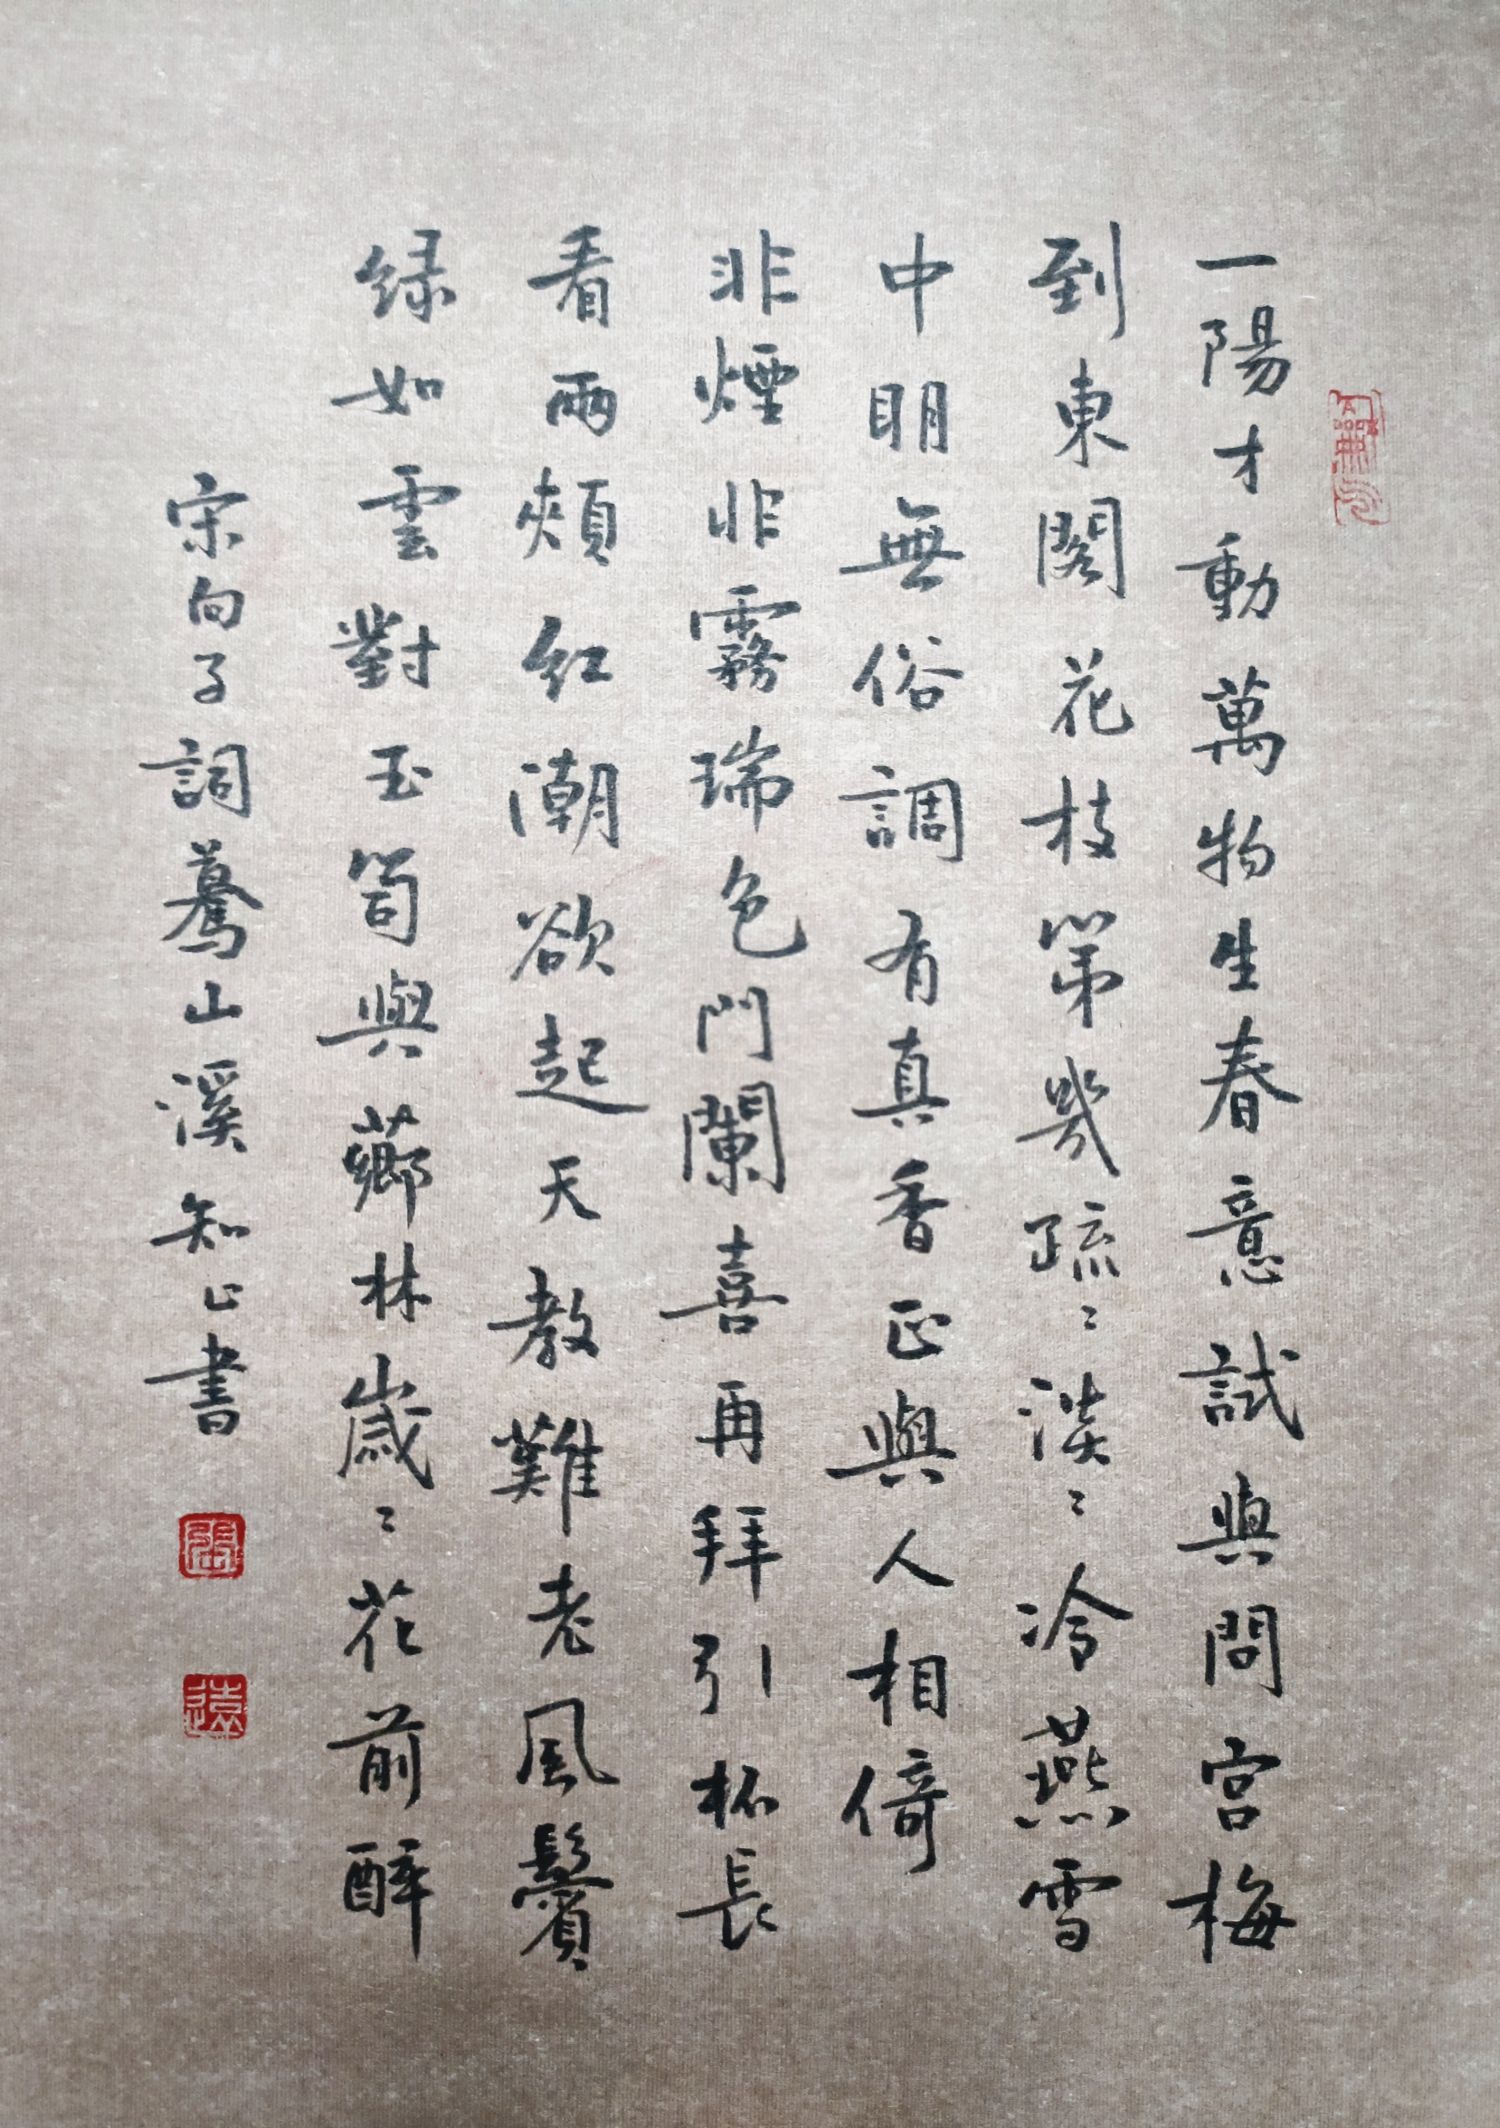 一陽才動萬物生春意試與問宮梅
到東閣花枝第幾疏〻淡〻冷燕雪
中明無俗調有真香正與人相倚
非煙非霧瑞色門闌喜再拜引杯長
看兩頰紅潮欲起天教難老風鬢
绿如雲對玉筍與薌林歲〻花前醉
宋向子詞驀山溪知止書
遠